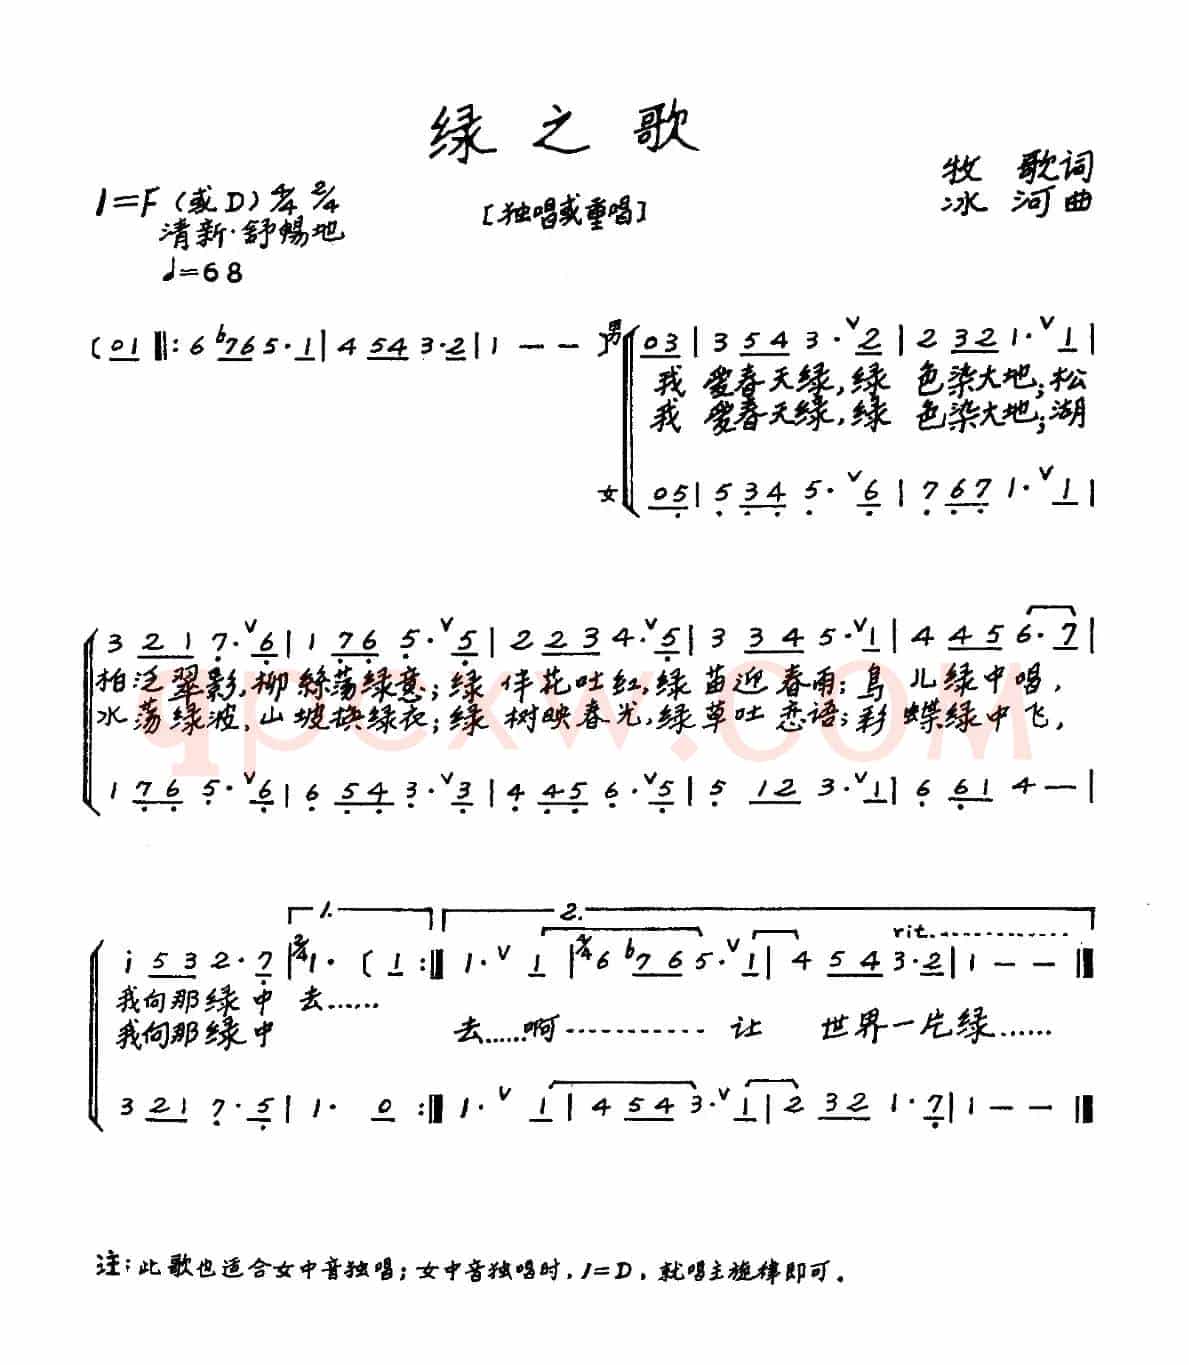 绿之歌
牧 歌词
冰 河曲
1=F（或D）4/4 2/4
[独唱或重唱]
清新·舒暢地
♩=68
(01 ‖: 6 ♭765·1 | 4 543·2 | 1 — — )
男 03 | 3 543·∨2 | 2 321·∨1 |
我 爱春天绿,绿 色染大地;松
我 爱春天绿,绿 色染大地;湖
女 05 | 5 345·∨6 | 7 671·∨1 |
3 217·∨6 | 1 765·∨5 | 2 234·∨5 | 3 345·∨1 | 4 456·7 |
柏泛翠影,柳絲荡绿意;绿 伴花吐红,绿 苗迎春雨;鸟 儿绿中唱,
水荡绿波,山坡披绿衣;绿 树映春光,绿草吐恋语;彩 蝶绿中飞,
qpcxw.com
1 765·∨6 | 6 543·∨3 | 4 456·∨5 | 5 123·∨1 | 6 614— |
1. 2.
rit.
i 532·7 | 2/4 1· (1 :‖ 1·∨1 | 4/4 6 ♭765·∨1 | 4 543·2 | 1 — — ‖
我向那绿中 去……
我向那绿中 去……啊 让 世界一片绿……
3 217·5 | 1· 0 :‖ 1·∨1 | 4 543·∨1 | 2 321·7 | 1 — — ‖
注：此歌也适合女中音独唱；女中音独唱时，1=D，就唱主旋律即可。